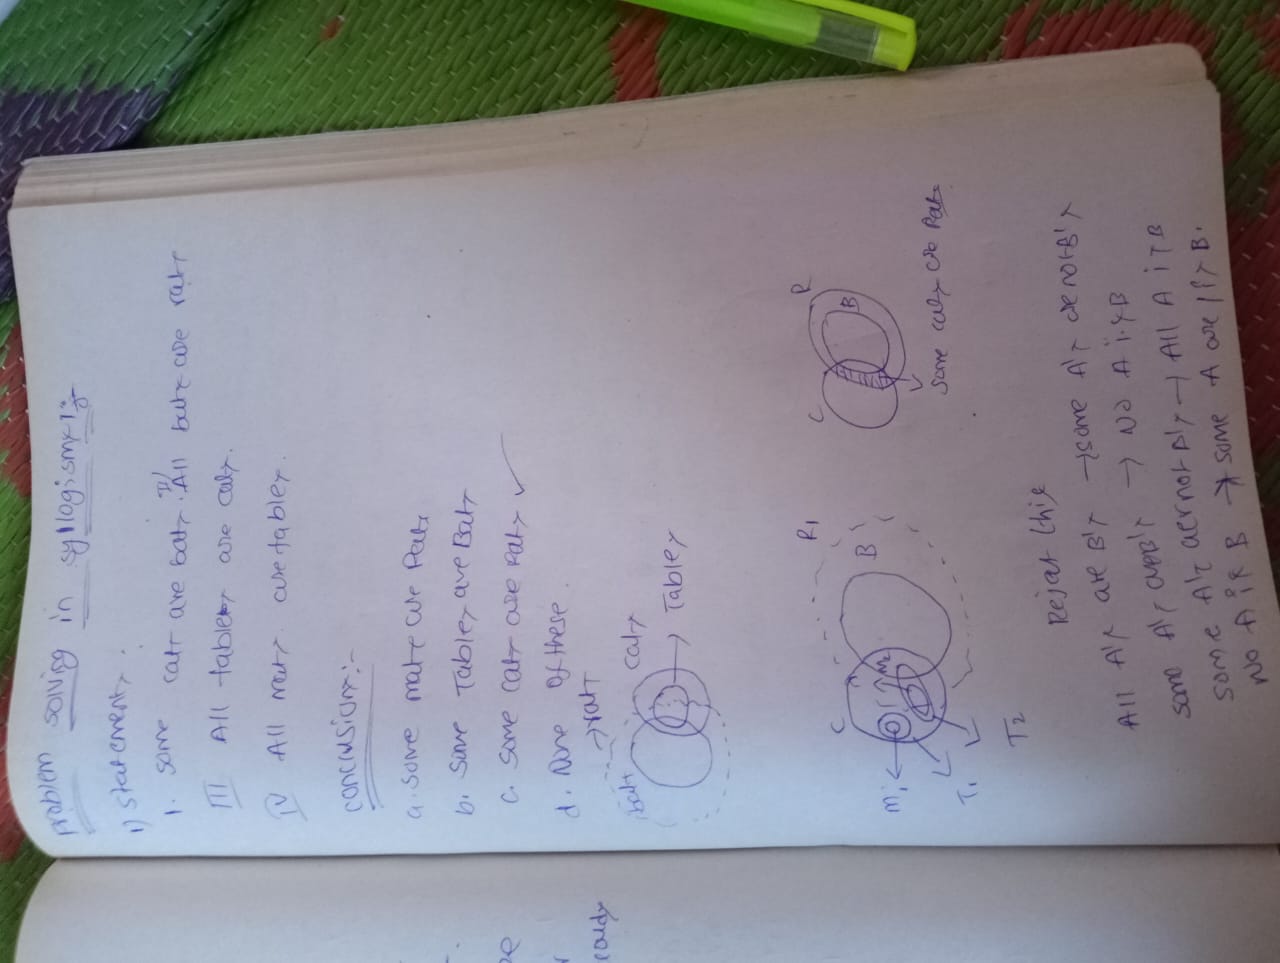 problem solving in syllogism-1:-
1) Statements:
1. some cats are bats. II) All bats are rats
III All tables are cats.
IV All mats are tables.
conclusions:-
a. some mats are Rats
b. some Tables are Bats
c. some cats are Rats ✓
d. None of these.
bats → rats cats
→ Tables
C R
B
some cats are Rats
C R1
B
M1 M2
T1
T2
Rejat this
All A's are B's → some A's are not B's
some A's are B's → NO A is B
some A's aer not B's → All A is B
NO A is B → some A are is B.